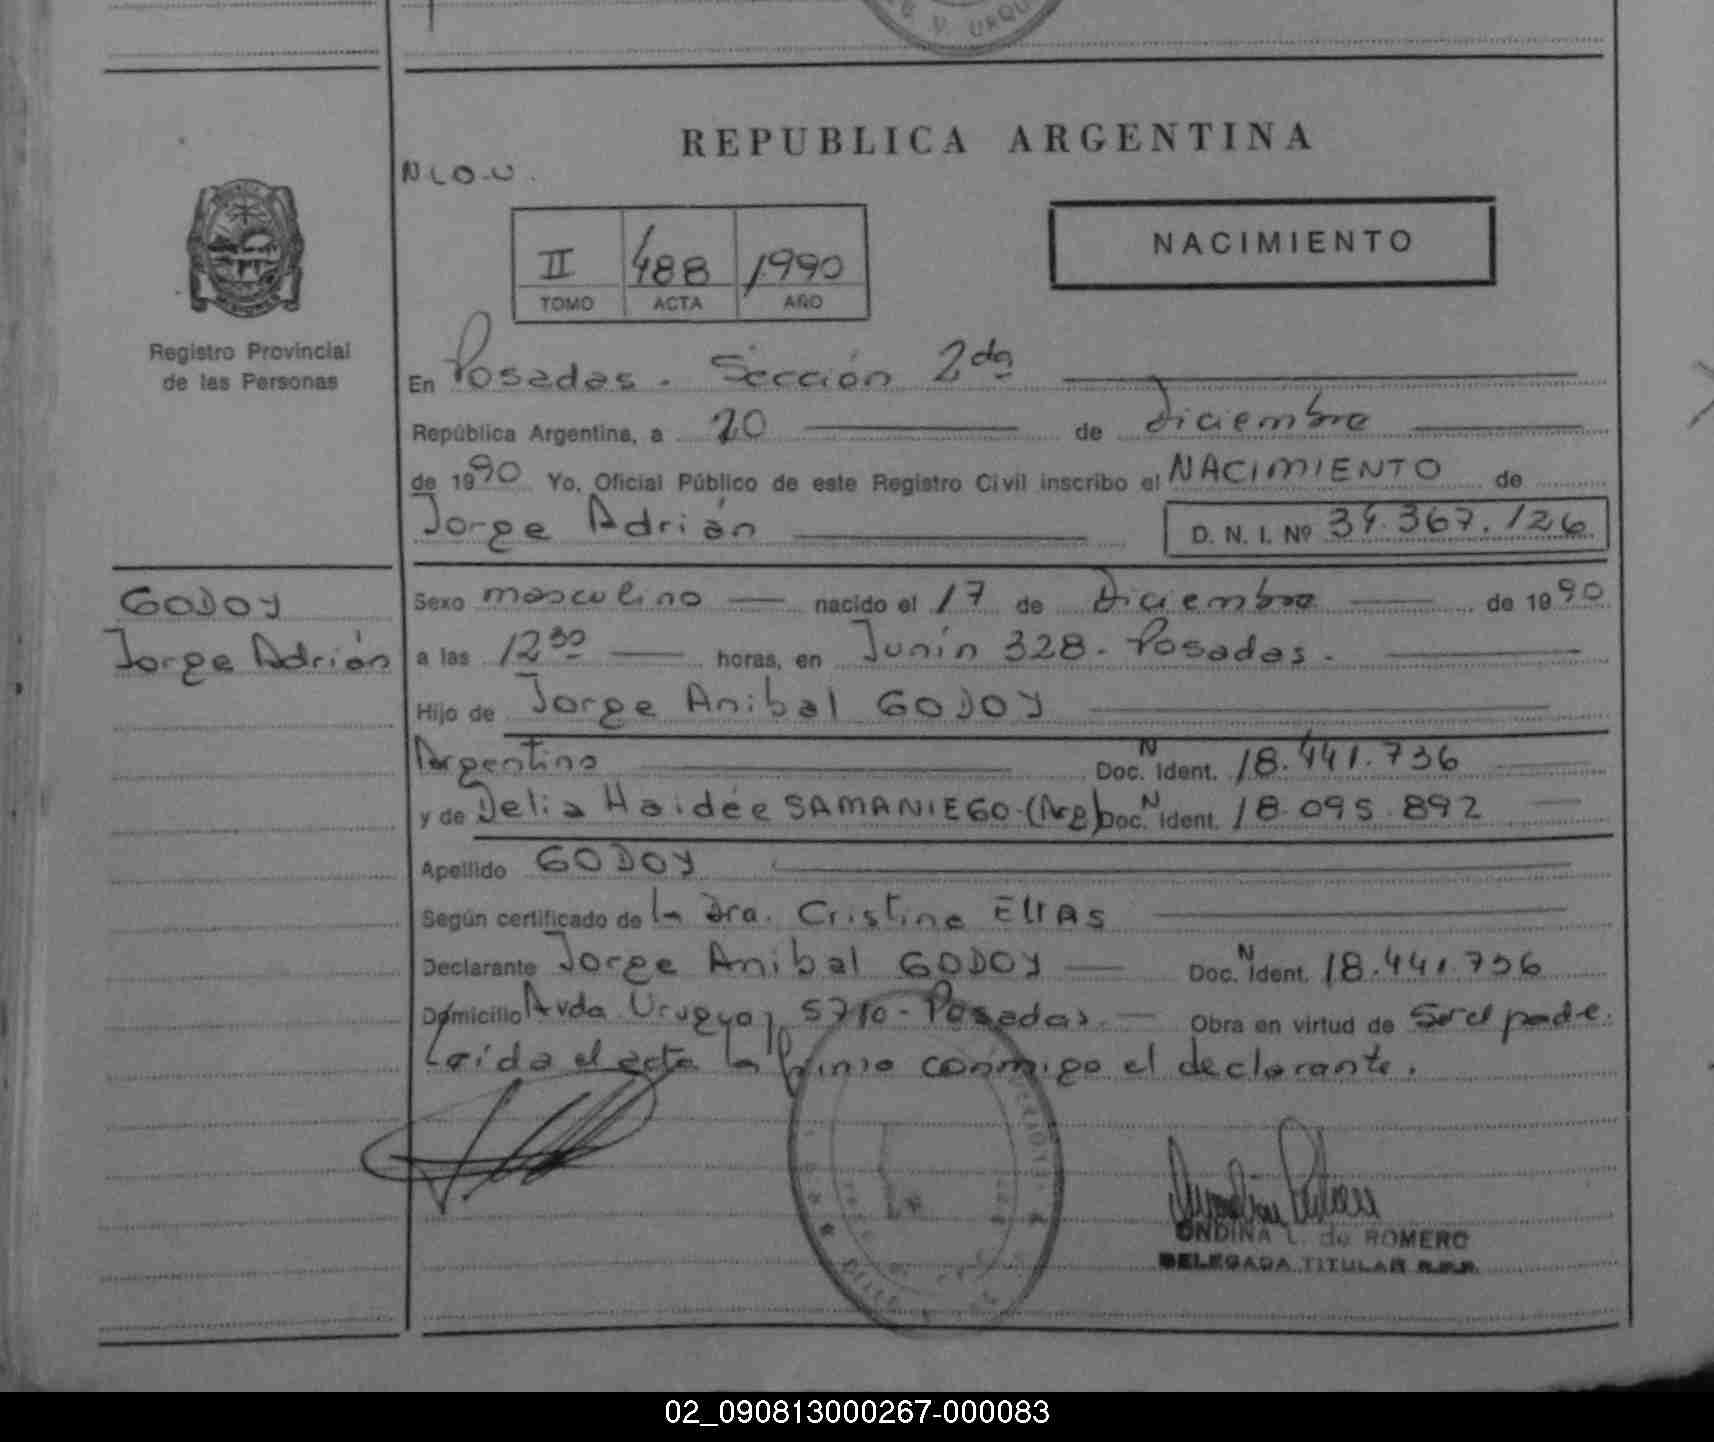 G. V. URQU
REPUBLICA ARGENTINA
N L O. U.
II 488 1990
TOMO ACTA AÑO
NACIMIENTO
Registro Provincial
de las Personas
En Posadas. Sección 2da
República Argentina, a 20 de Diciembre
de 1990 Yo, Oficial Público de este Registro Civil inscribo el NACIMIENTO de
Jorge Adrián D. N. I. Nº 34.367.126
GODOY
Jorge Adrián
Sexo masculino nacido el 17 de Diciembre de 1990
a las 12 30 horas, en Junín 328. Posadas.
Hijo de Jorge Anibal GODOY
Argentino Doc. N Ident. 18.441.736
y de Delia Haidée SAMANIEGO (Arg) Doc. N Ident. 18.095.892
Apellido GODOY
Según certificado de la Dra. Cristina ELIAS
Declarante Jorge Anibal GODOY Doc. N Ident. 18.441.736
Domicilio Avda Uruguay 5710 - Posadas. Obra en virtud de Ser el padre.
Leída el acta la firma conmigo el declarante.
ONDINA L. de ROMERO
DELEGADA TITULAR R.P.P.
02_090813000267-000083